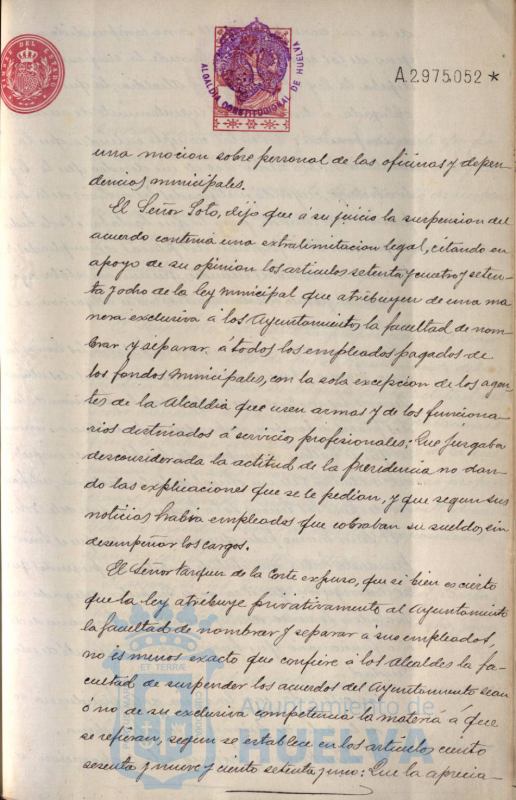 A.2.975.052 *
ALCALDIA CONSTITUCIONAL DE HUELVA
una mocion sobre personal de las oficinas y depen
dencias municipales.
El Señor Soto, dijo que á su juicio la suspension del
acuerdo contenia una extralimitacion legal, citando en
apoyo de su opinion los articulos setenta y cuatro y seten
ta y ocho de la ley municipal que atribuyen de una ma
nera exclusiva á los Ayuntamientos, la facultad de nom-
brar y separar á todos los empleados pagados de
los fondos municipales, con la sola excepcion de los agen-
tes de la Alcaldia que usen armas y de los funciona
rios destinados á servicios profesionales: Que juzgaba
desconsiderada la actitud de la presidencia no dan-
do las explicaciones que se le pedian, y que segun sus
noticias habia empleados que cobraban su sueldo, sin
desempeñar los cargos.
El Señor Parquin de la Corte expuso, que si bien es cierto
que la ley atribuye privativamente al Ayuntamiento
la facultad de nombrar y separar á sus empleados,
no es menos exacto que confiere á los Alcaldes la fa-
cultad de suspender los acuerdos del Ayuntamiento sean
ó no de su exclusiva competencia la materia á que
se refieran, segun se establece en los articulos ciento
sesenta y nueve y ciento setenta y uno: Que la aprecia-
ET TERRÆ
Ayuntamiento de
HUELVA